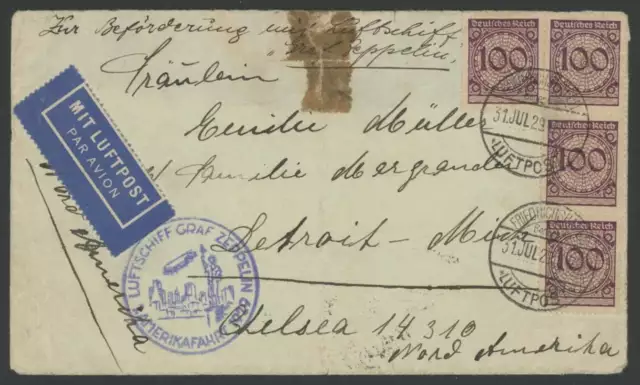 Zur Beförderung mit Luftschiff
„Graf Zeppelin“
Fräulein
Emilie Müller
Familie Mergrande
Detroit - Mich
Chelsea 14310
Nord Amerika
Nord Amerika
MIT LUFTPOST
PAR AVION
LUFTSCHIFF GRAF ZEPPELIN
AMERIKAFAHRT 1929
Deutsches Reich
100
Deutsches Reich
100
Deutsches Reich
100
Deutsches Reich
100
31.JUL.29
LUFTPOST
FRIEDRICHSH
31.JUL.29
LUFTPOST